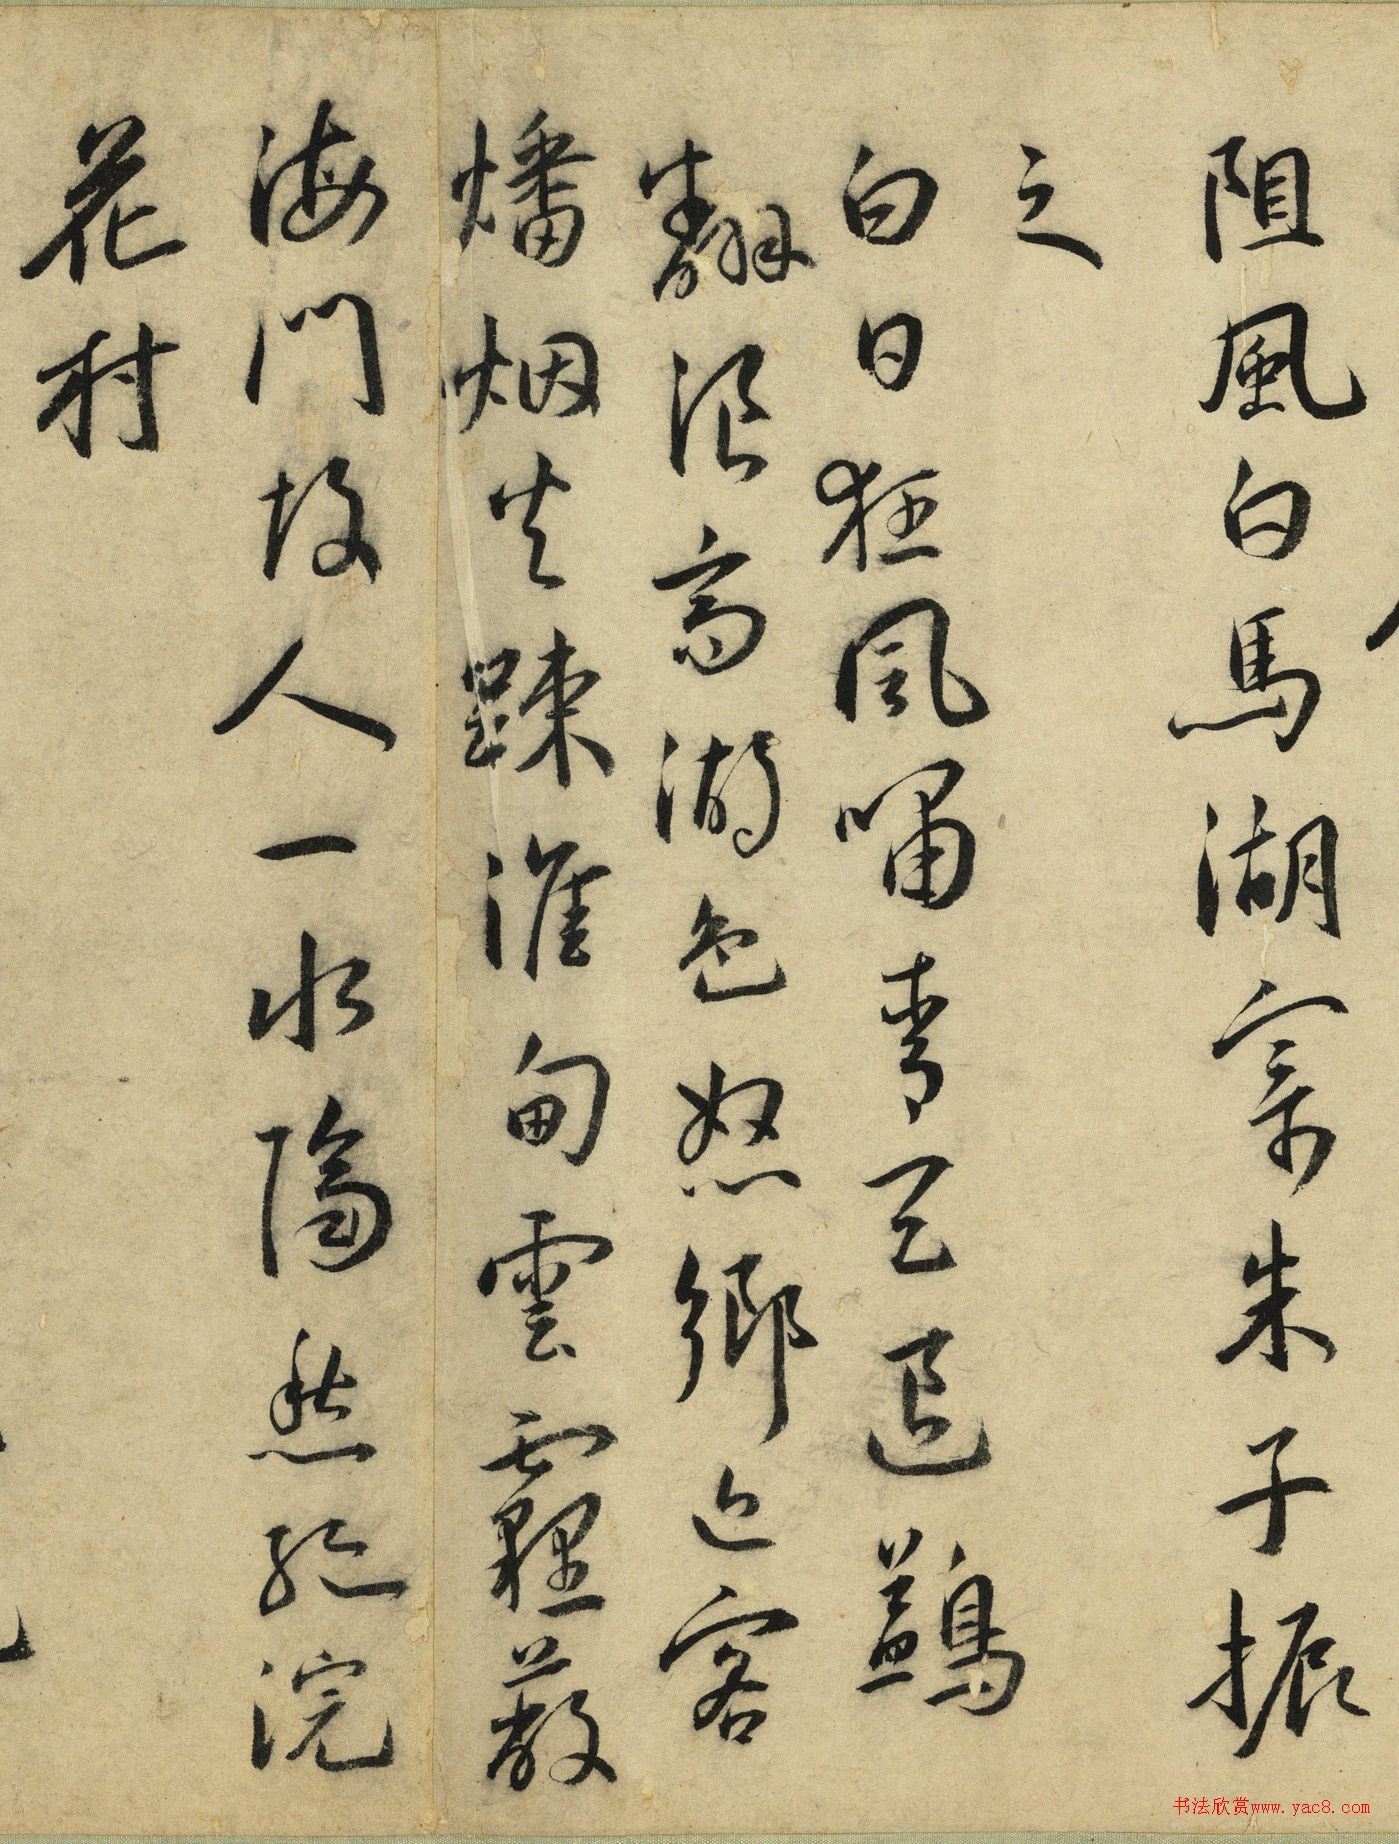 阻風白馬湖寄朱子振
之
白日狂風嘯青天退鷁
翻浪高湖色怒鄉近客
燔烟火踈淮甸雲霾蔽
海門故人一水隔愁絕浣
花村
书法欣赏www.yac8.com